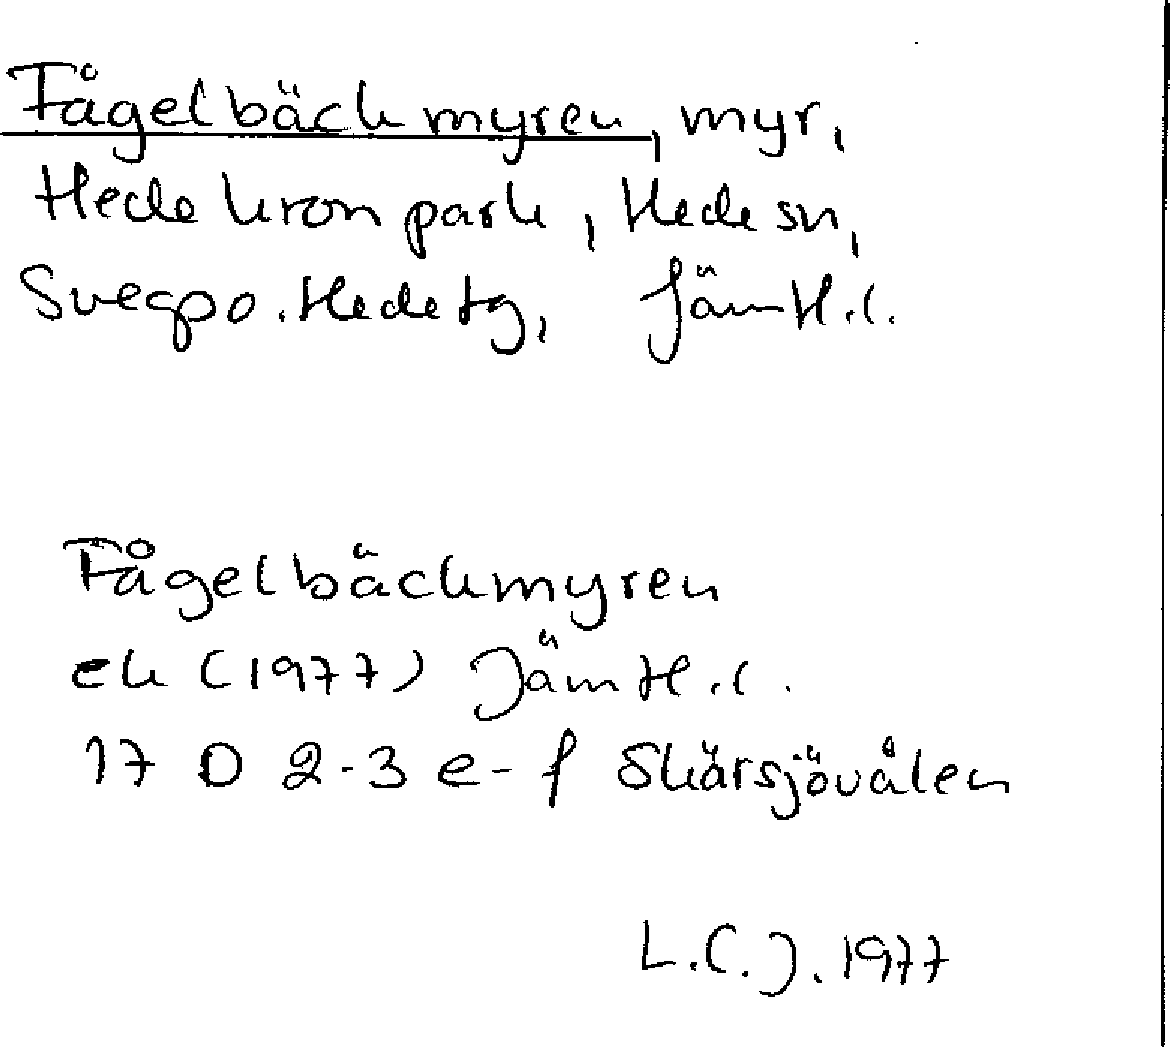 Fågelbäckmyren, myr,
Hede kronpark, Hede sn,
Svegs po. Hede tg, Jämtl.l.
Fågelbäckmyren
ek (1977) Jämtl.l.
17 D 2-3 e-f Skärsjövålen
L.C.J. 1977